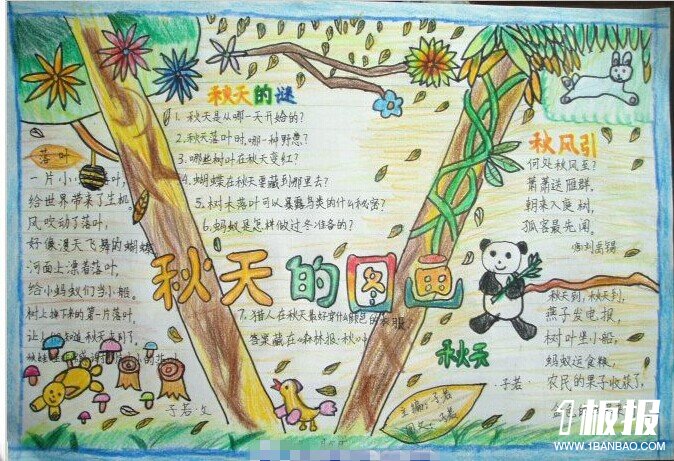 落叶
一片小小落叶,
给世界带来了生机
风吹动了落叶,
好像漫天飞舞的蝴蝶
河面上漂着落叶,
给小蚂蚁们当小船。
树上掉下来的第一片落叶
让人们知道秋天来到了,
子若文
秋天的谜
1、秋天是从哪一天开始的?
2、秋天落叶时,哪一种野
3、哪些树叶在秋天变红?
4、蝴蝶在秋天要藏到哪里去?
5、树木落叶可以暴露鸟类的什么秘密?
6、蚂蚁是怎样做过冬准备的?
秋天的图画
7、猎人在秋天最好穿什么颜色的衣服
答案藏在《森林报·秋》
秋风引
何处秋风至?
萧萧送雁群。
朝来入庭树,
孤客最先闻。
唐刘禹锡
秋天
秋天到,秋天到,
燕子发电报,
树叶坐小船,
蚂蚁运食粮,
农民的果子收获了,
子若
主编:子若
图文:子若
1板报
WWW.1BANBAO.COM